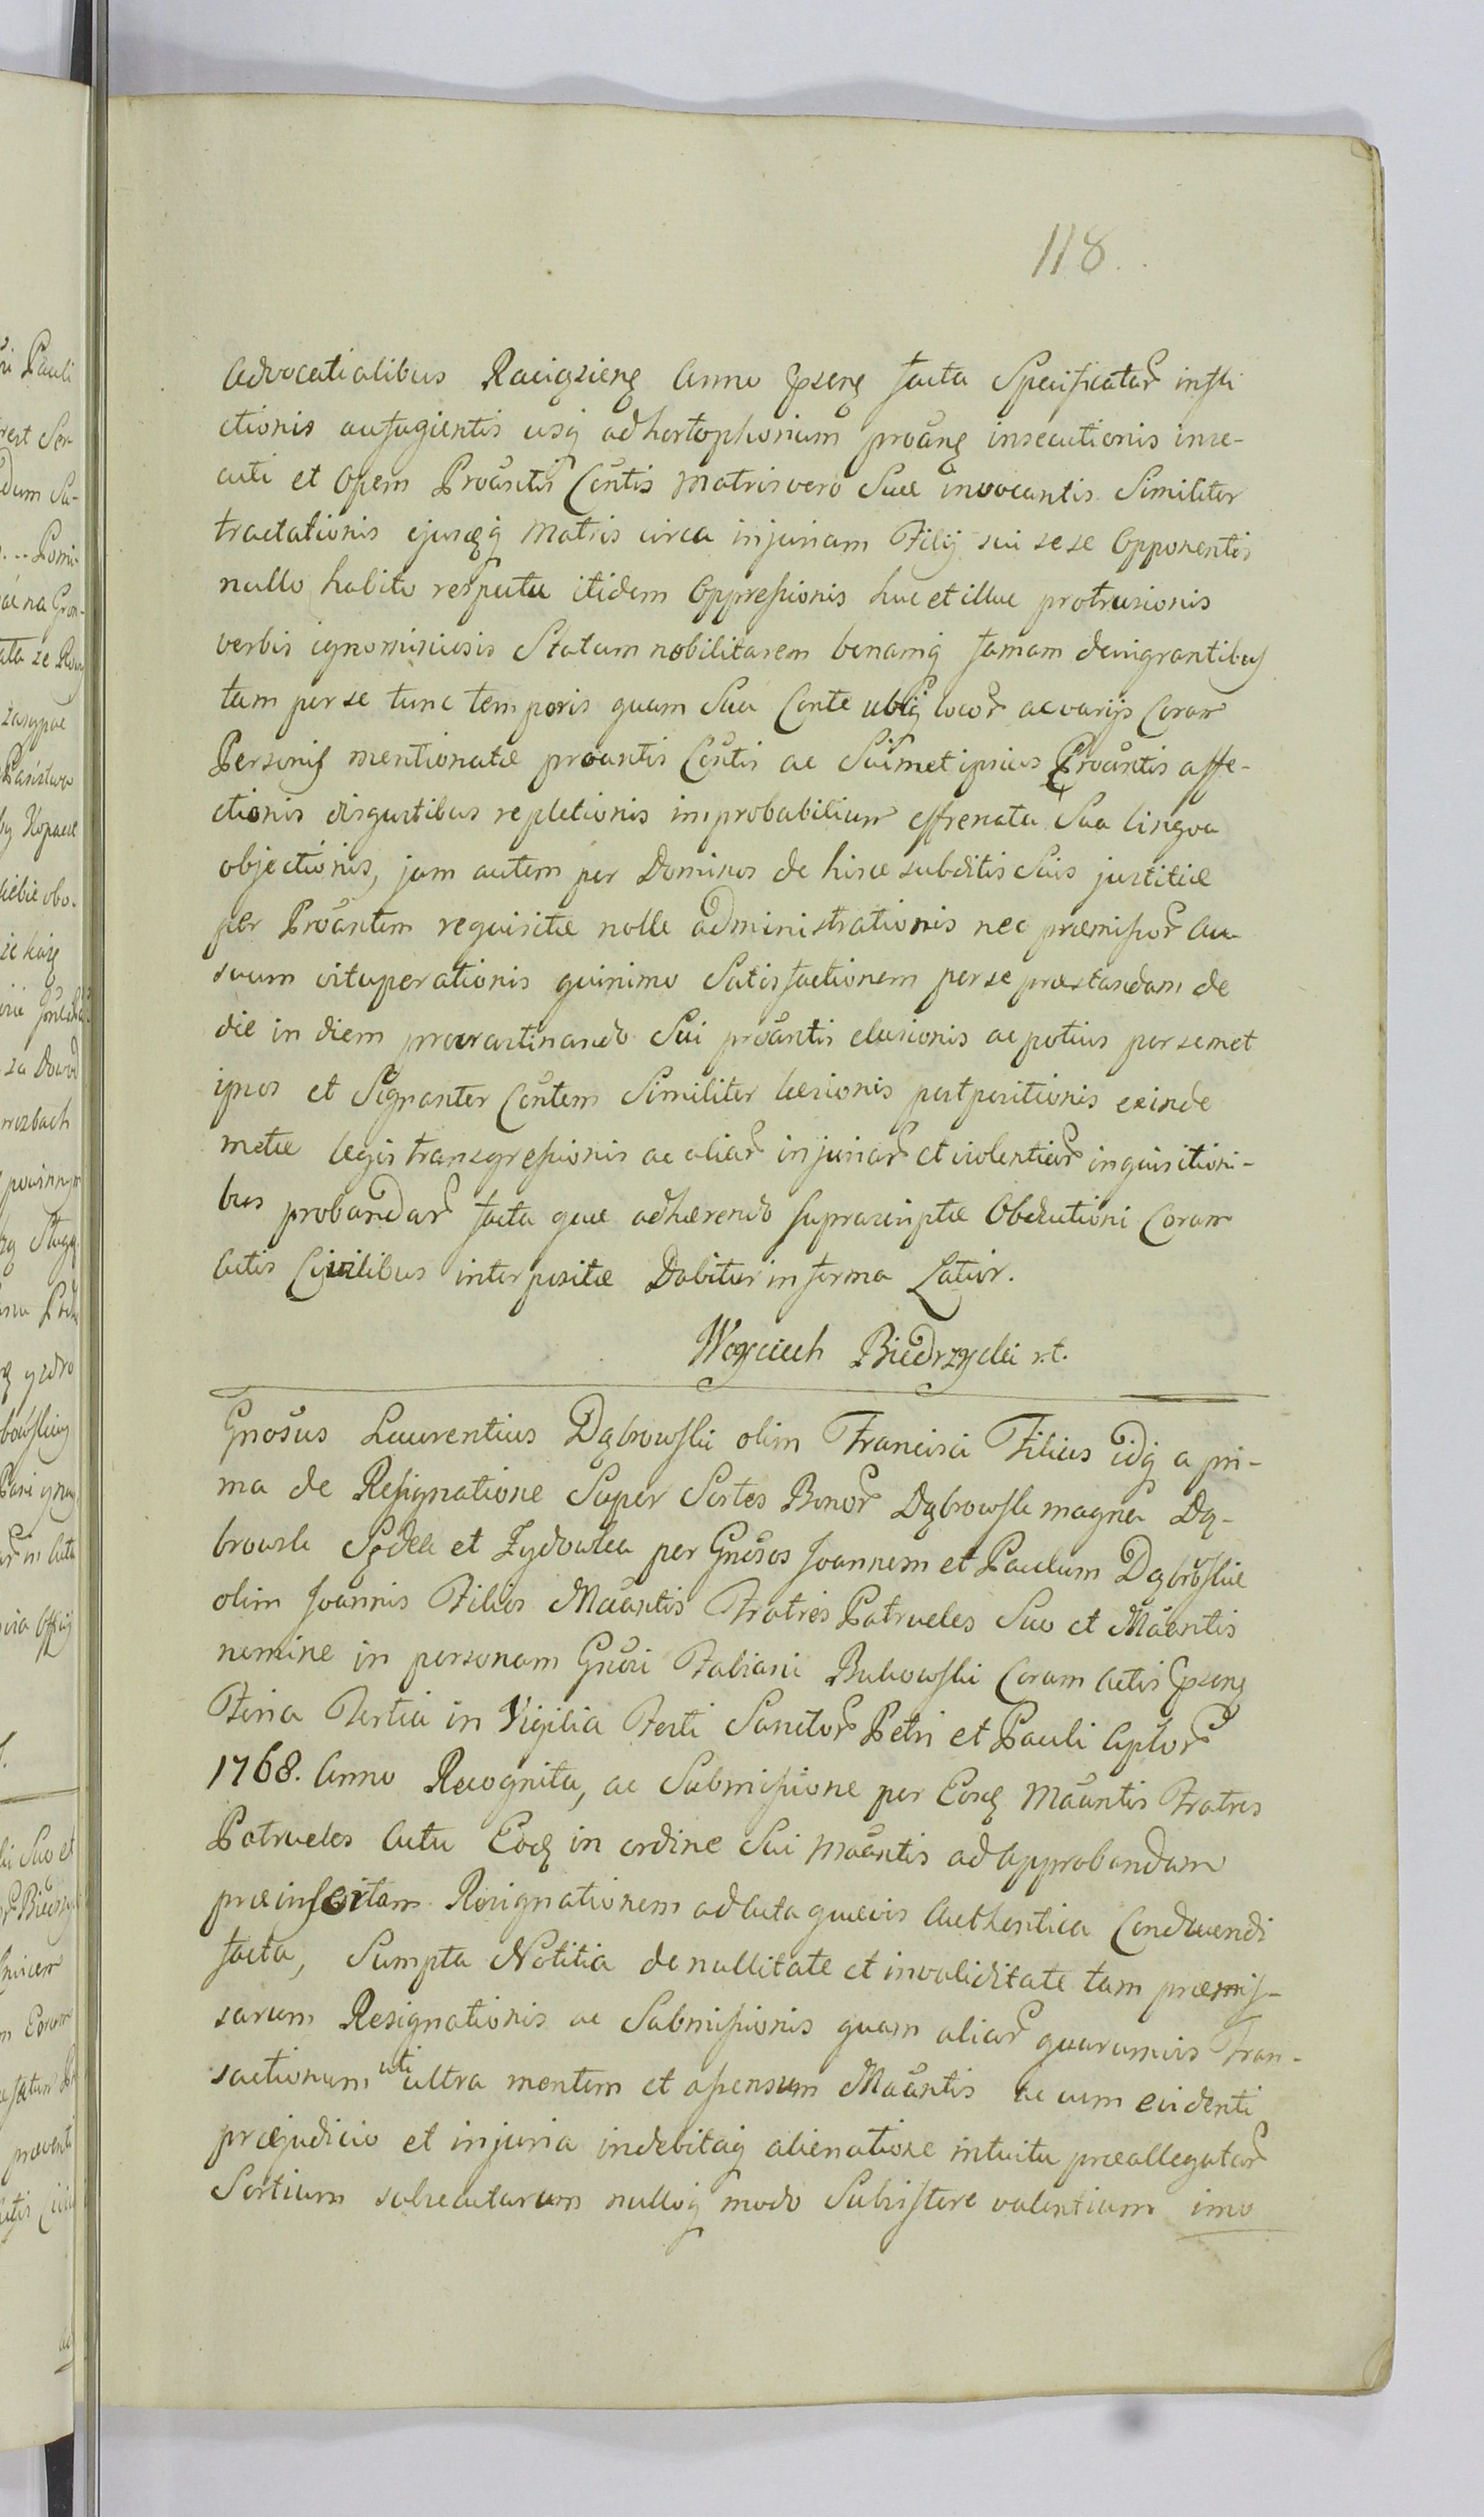 118.
Advocatialibus Raciąziens Anno Pnti facta Specificatar infli
ctionis aufugientis usq ad hortophonium proane insecutionis inse-
cuti et Opem Proantis Contis Matris vero Suae invocantis Similiter
tractationis ejusdq Matris circa injuriam Filij sui sese Opponentis
nullo habito respectu itidem Oppressionis huc et illuc protrusionis
verbis ignominiosis Statum nobilitarem bonamq famam denigrantibus
tam per se tunc temporis quam Sua Conte ubiq locor ac varijs Coram
Personis mentionatae proantis Contis ac Suimet ipsius Proantis affe-
ctionis disgustibus repletionis improbabilium effrenata Sua lingva
objectionis, jam autem per Dominos de hisce subditis Suis justitiae
per Proantem requisitae nolle administrationis nec praemissor Au
suum vituperationis quinimo Satisfactionem per se praestandam de
die in diem procrastinando Sui proantis elusionis ac potius per semet
ipsos et Signanter Contem Similiter laesionis postpositionis exinde
metae legis transgressionis ac aliar injuriar et violentiar inquisitioni-
bus probandar facta quae adhaerendo suprascriptae Obductioni Coram
Actis Civilibus interpositae Dabitur in forma Latior.
Woyciech Biedrzycki r.t.
Gnosus Laurentius Dąbrowski olim Francisci Filius idq a pri-
ma de Resignatione Super Sortes Bonor Dąbrowska magna Dą-
browska Sędki et Zydówka per Gnosos Joannem et Paulum Dąbrowskie
olim Joannis Filios Maantis Fratres Patrueles Suo et Maantis
nomine in personam Gnosi Fabiani Bukowski Coram Actis
Feria Tertia in Vigilia Festi Sanctor Petri et Pauli Aplor
1768. Anno Recognita, ac Submissione per Eosd Maantis Fratres
Patrueles Actu Eod in ordine Sui Maantis ad Approbandam
praeinsertam Resignationem ad Acta quaevis Authentica Conducendi
facta, Sumpta Notitia de nullitate et invaliditate tam praemis-
sarum Resignationis ac Submissionis quam aliar quarumvis Tran-
sactionum uti ultra mentem et assensum Maantis ac cum evidenti
praejudicio et injuria indebitaq alienatione intuitu praeallegatar
Sortium subsecutarum nulloq modo Subsistere valentium imo